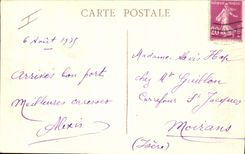 CARTE POSTALE
6 Août 1935
Arrivés bon port
Meilleures caresses
Alexis
Madame Hop
chez Mr Guillon
Carrefour St Jacques
Moirans
(Isère)